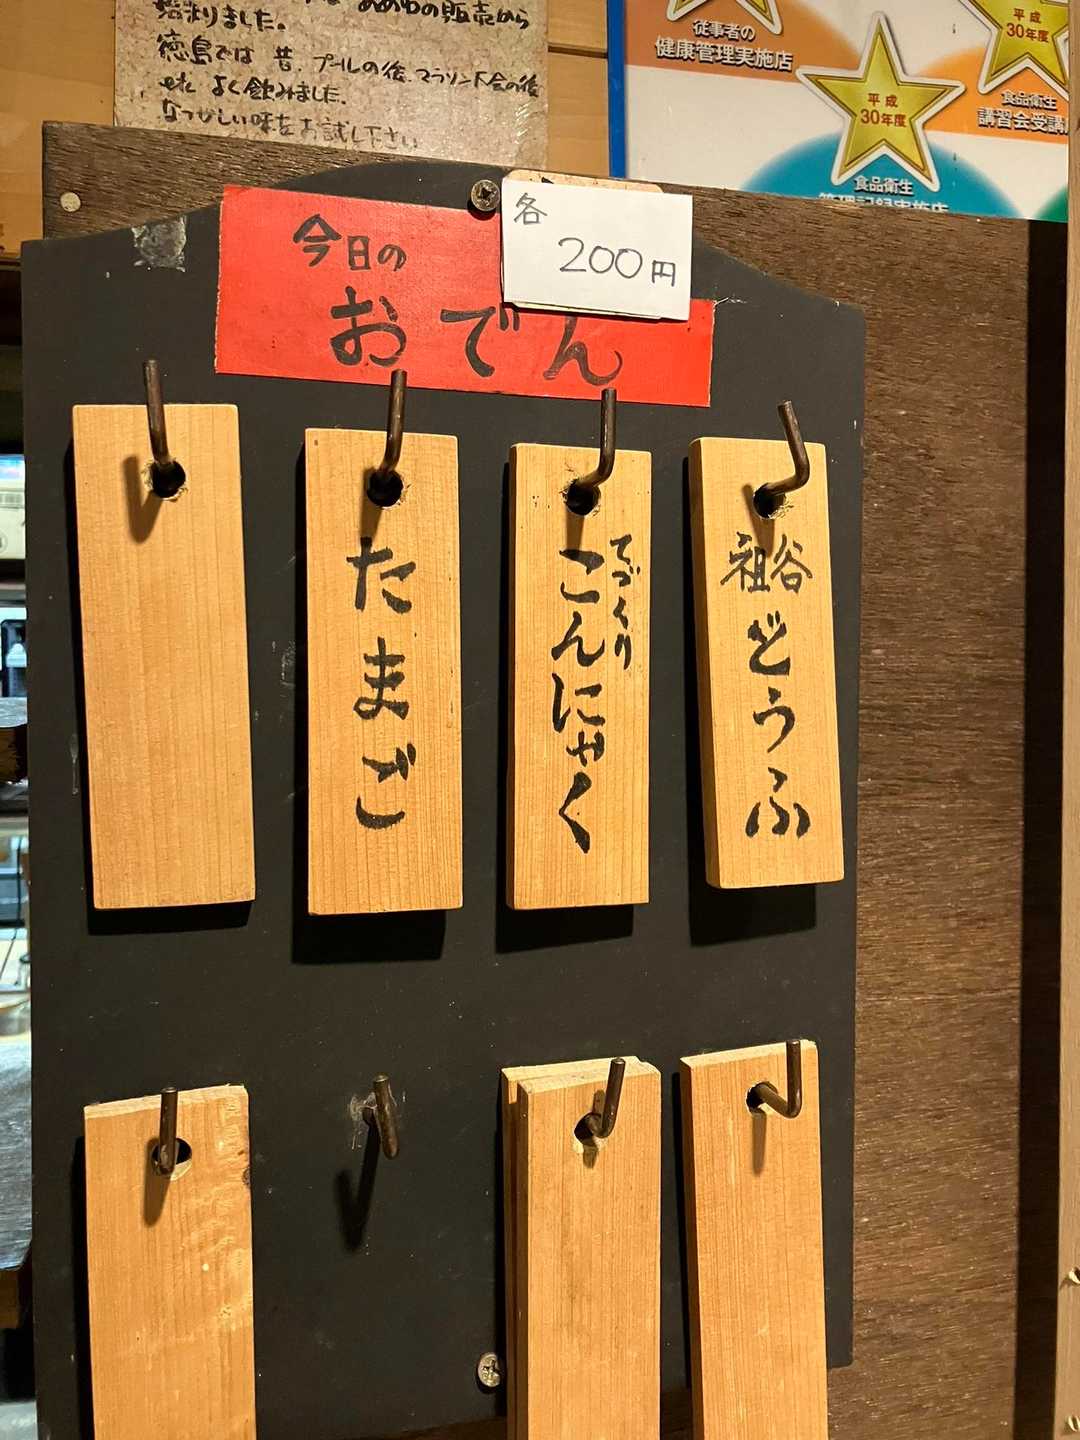 始まりました。
徳島では 昔、プールの後、マラソン大会の後
よく飲みました。
なつかしい味をお試し下さい
従事者の
健康管理実施店
平成
30年度
食品衛生
管理記録実施店
平成
30年度
食品衛生
講習会受講
各
200円
今日の
おでん
祖谷どうふ
てづくり
こんにゃく
たまご